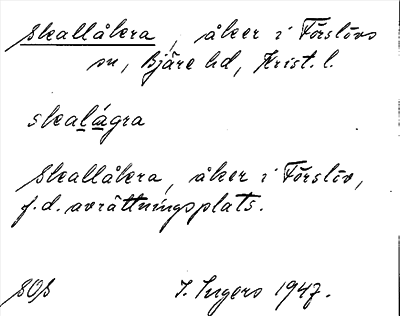 Skallåkra, åker i Förslövs
sn, Bjäre hd, Krist. l.
skalágra
Skallåkra, åker i Förslöv,
f.d. avrättningsplats.
SOS I. Ingers 1947.